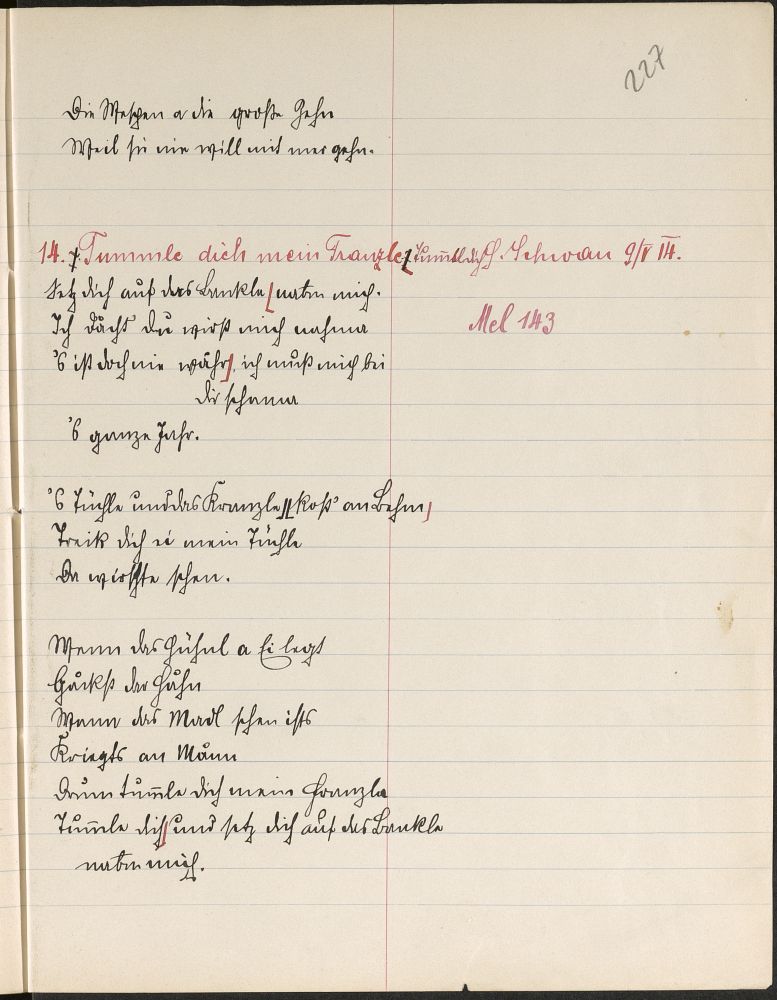 227
Die Wespen a die große Zehn
Weil sie nie will mit mer gehn.
14. Tummle dich mein Franzle, Tum̄tl dich S. Schwan 9/V 14.
Setz dich auf das Bankle naben mich.
Mel 143
Ich dåcht du wirst mich nahma
's ist doch nie wåhr, ich muß mich bei
dir schama
's ganze Jahr.
's Tüchle und das Kranzle kost' an Behm
Treik dich ei mein Tüchle
Da wirschte schen.
Wenn das Hühnl a Ei legt
Gåckst der Håhn
Wann das Madl schen ists
Kriegts an Månn
Drum tum̄le dich mein Franzla
Tum̄le dich und setz dich auf das Bankle
naben mich.